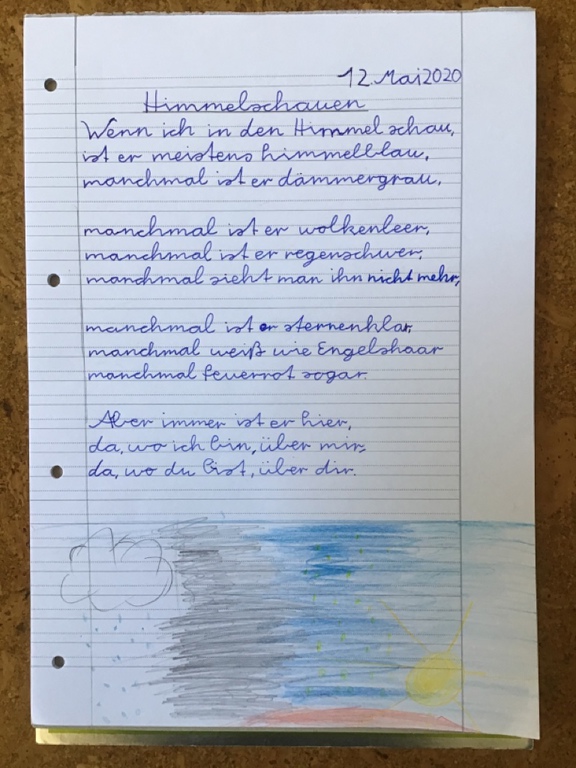 12. Mai 2020
Himmelschauen
Wenn ich in den Himmel schau,
ist er meistens himmelblau,
manchmal ist er dämmergrau,
manchmal ist er wolkenleer,
manchmal ist er regenschwer,
manchmal sieht man ihn nicht mehr,
manchmal ist er sternenklar,
manchmal weiß wie Engelshaar
manchmal feuerrot sogar.
Aber immer ist er hier,
da, wo ich bin, über mir,
da, wo du bist, über dir.